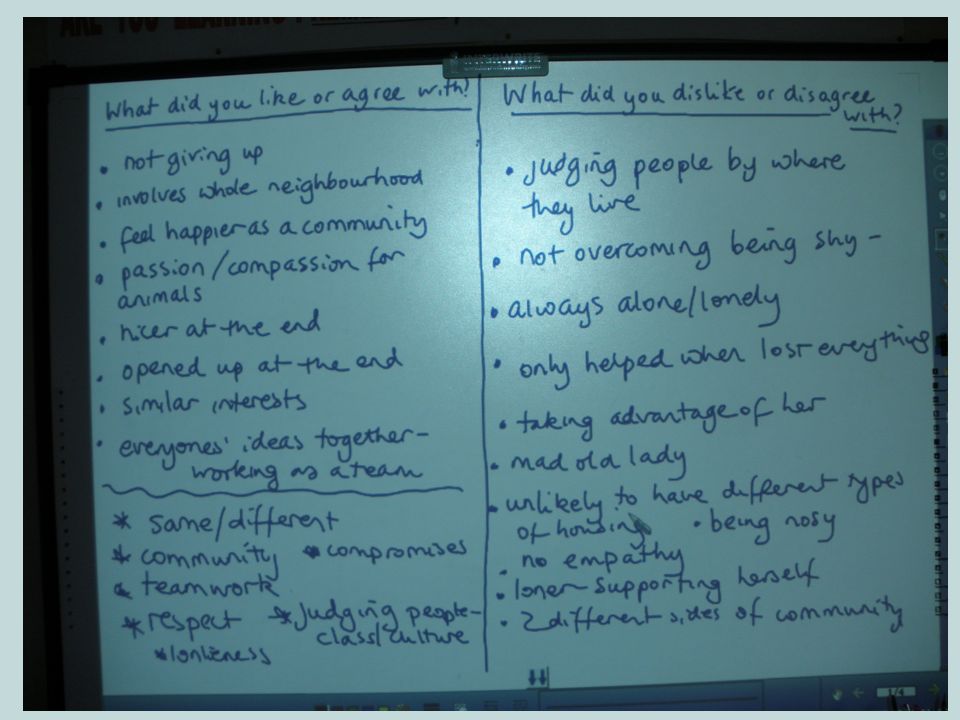 ARE YOU LEARNING
INTERWRITE
What did you like or agree with?
• not giving up
• involves whole neighbourhood
• feel happier as a community
• passion/compassion for
animals
• nicer at the end
• opened up at the end
• similar interests
• everyones' ideas together -
working as a team
* same/different
* community * compromises
* teamwork
* respect * judging people -
class/culture
* lonlieness
What did you dislike or disagree
with?
• judging people by where
they live
• not overcoming being shy -
• always alone/lonely
• only helped when lost everything
• taking advantage of her
• mad old lady
• unlikely to have different types
of housing • being nosy
• no empathy
• loner - supporting herself
• 2 different sides of community
1/4